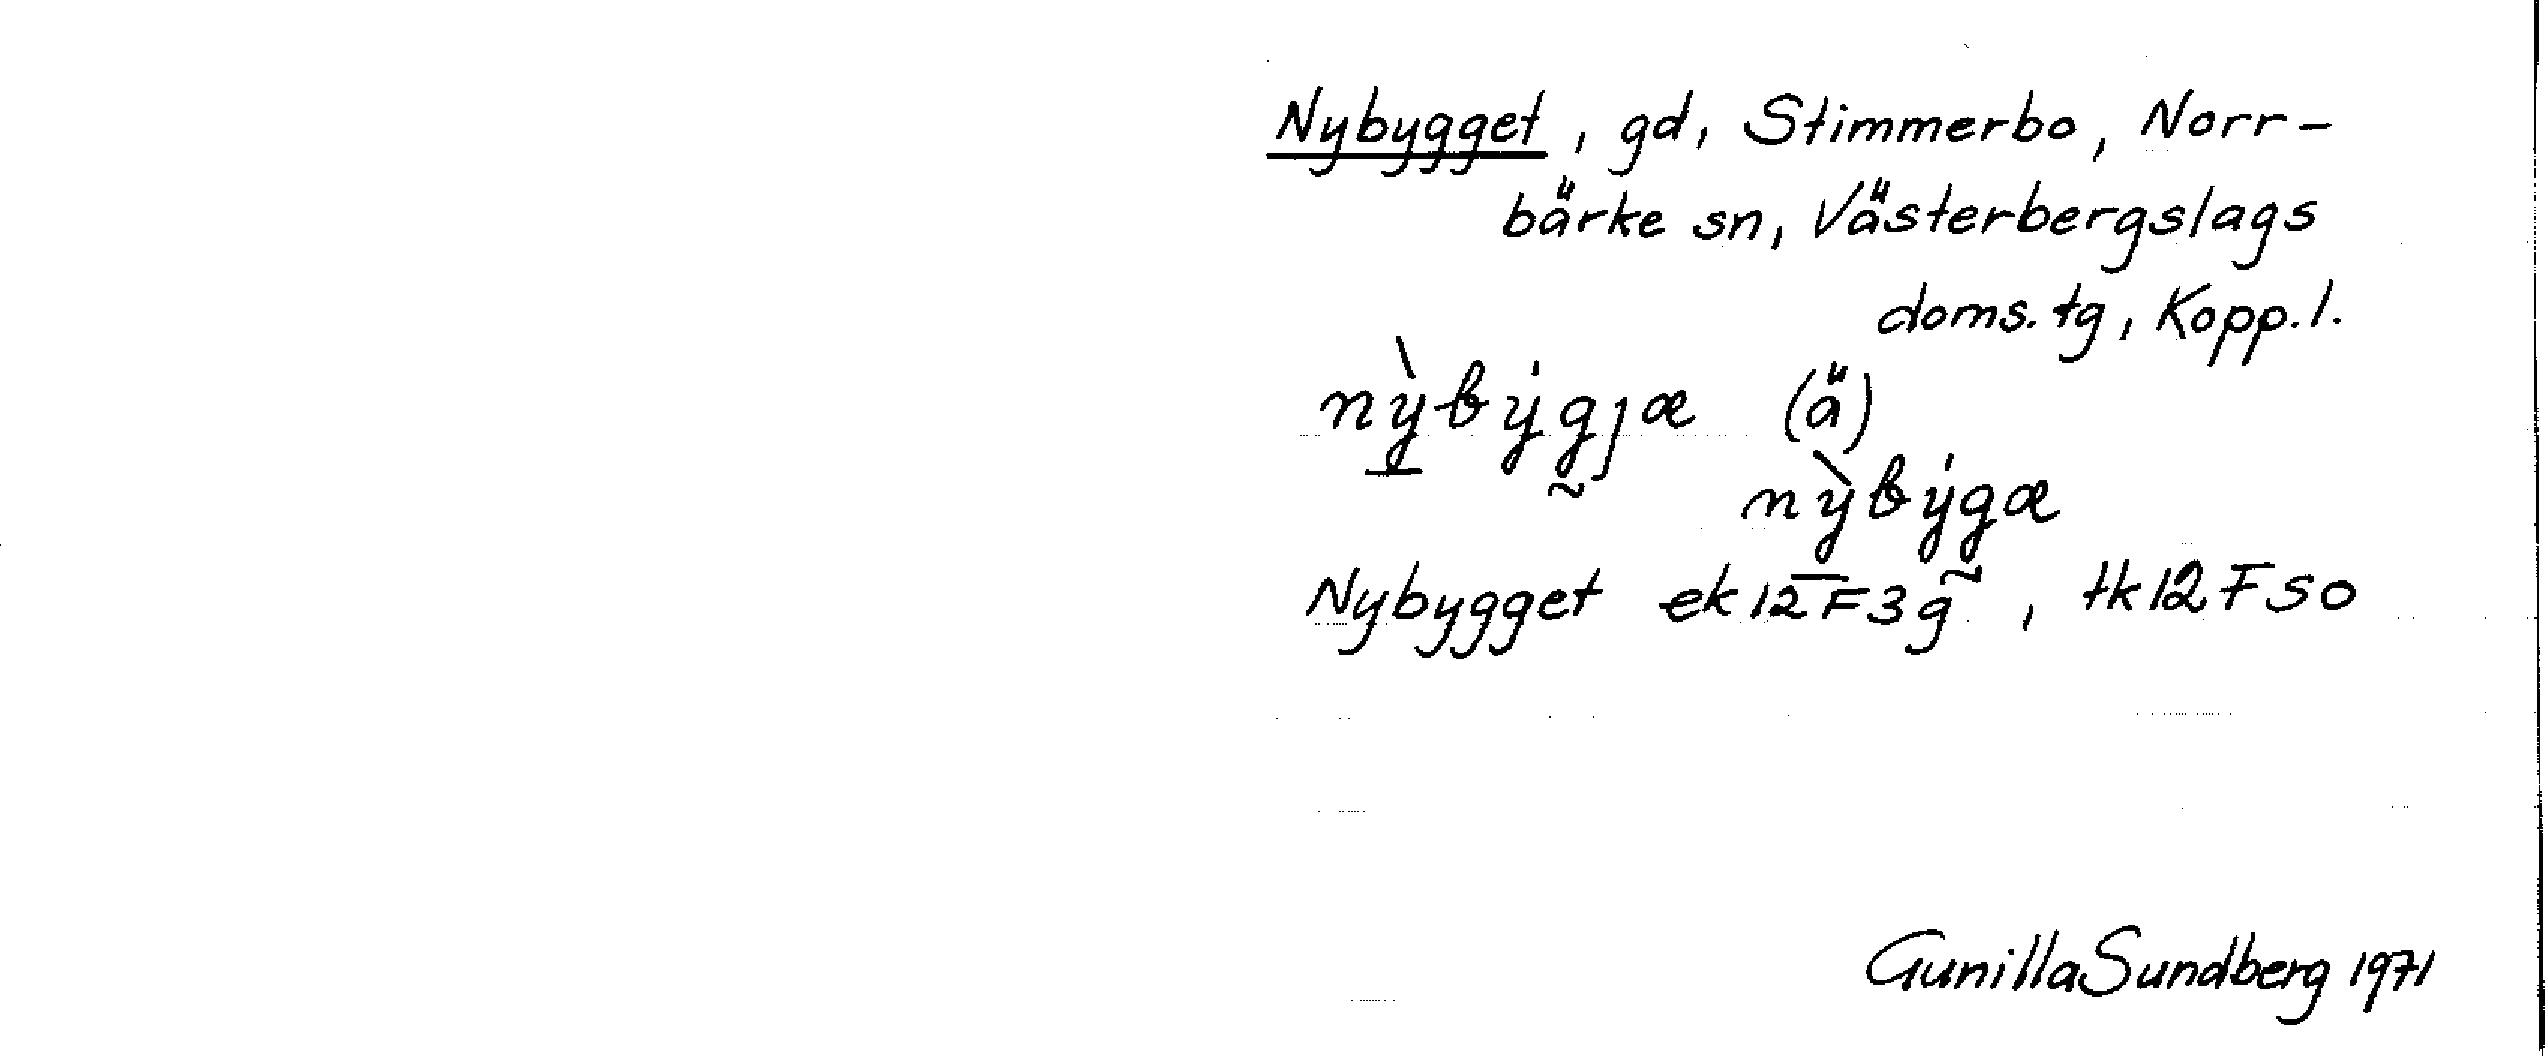 Nybygget, gd, Stimmerbo, Norr-
bärke sn, Västerbergslags
doms. tg, Kopp. l.
nỳ̱bẏg̰jæ (ä)
nỳ̱bẏg̰æ
Nybygget ek 12F3g, tk 12F SO
Gunilla Sundberg 1971